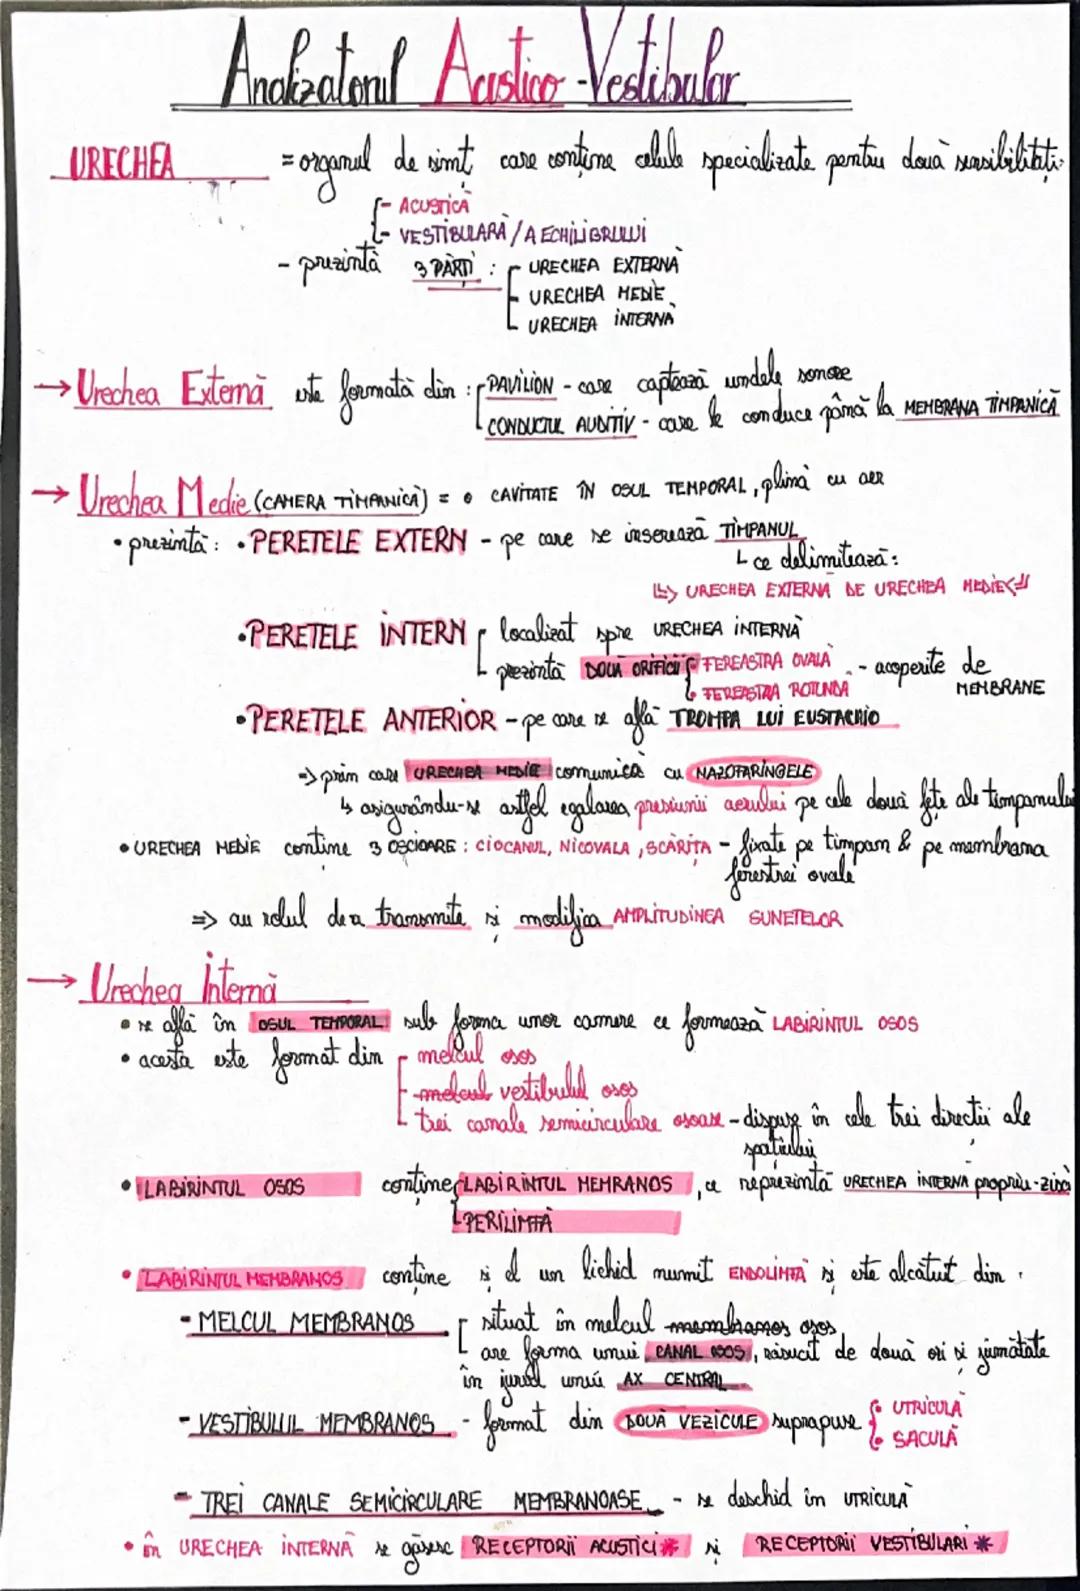 Analizatorul Acustico-Vestibular
URECHEA = organul de simț care conține celule specializate pentru două sensibilități:
- ACUSTICĂ
- VESTIBULARĂ / A ECHILIBRULUI
- prezintă 3 PĂRȚI : URECHEA EXTERNĂ
URECHEA MEDIE
URECHEA INTERNĂ
→ Urechea Externă este formată din : PAVILION - care captează undele sonore
CONDUCTUL AUDITIV - care le conduce până la MEMBRANA TIMPANICĂ
→ Urechea Medie (CAMERA TIMPANICĂ) = o CAVITATE ÎN OSUL TEMPORAL, plină cu aer
• prezintă : • PERETELE EXTERN - pe care se inserează TIMPANUL
↳ ce delimitează :
↳> URECHEA EXTERNĂ DE URECHEA MEDIE <↲
• PERETELE INTERN localizat spre URECHEA INTERNĂ
prezintă DOUĂ ORIFICII FEREASTRA OVALĂ - acoperite de
FEREASTRA ROTUNDA MEMBRANE
• PERETELE ANTERIOR - pe care se află TROMPA LUI EUSTACHIO
=> prin care URECHEA MEDIE comunică cu NAZOFARINGELE
↳ asigurându-se astfel egalarea presiunii aerului pe cele două fețe ale timpanului
• URECHEA MEDIE conține 3 OSCIOARE : CIOCANUL, NICOVALA, SCĂRIȚA - fixate pe timpan & pe membrana
ferestrei ovale
=> au rolul de a transmite și modifica AMPLITUDINEA SUNETELOR
→ Urechea Internă
• se află în OSUL TEMPORAL sub forma unor camere ce formează LABIRINTUL OSOS
• acesta este format din melcul osos
melcul vestibulul osos
trei canale semicirculare osoase - dispuse în cele trei direcții ale
spațiului
• LABIRINTUL OSOS conține LABIRINTUL MEMRANOS, ce reprezintă URECHEA INTERNĂ propriu-zisă
PERILIMFĂ
• LABIRINTUL MEMBRANOS conține și el un lichid numit ENDOLIMFĂ și este alcătuit din :
- MELCUL MEMBRANOS situat în melcul membranos osos
are forma unui CANAL OSOS, răsucit de două ori și jumătate
în jurul unui AX CENTRAL
- VESTIBULUL MEMBRANOS - format din DOUĂ VEZICULE suprapuse UTRICULĂ
SACULĂ
- TREI CANALE SEMICIRCULARE MEMBRANOASE - se deschid în UTRICULĂ
• în URECHEA INTERNĂ se găsesc RECEPTORII ACUSTICI * și RECEPTORII VESTIBULARI *